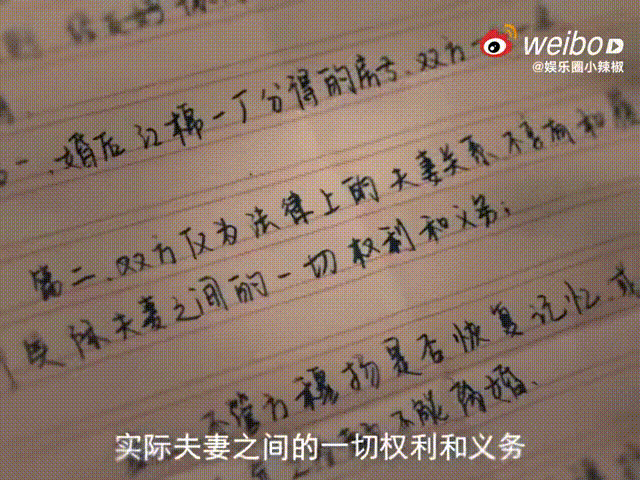 weibo
@娱乐圈小辣椒
一、婚后江棉一丁分得的房子、双方
第二、双方仅为法律上的夫妻关系、不享有和履
行实际夫妻之间的一切权利和义务；
不管方穆扬是否恢复记忆、或
不能离婚、
实际夫妻之间的一切权利和义务